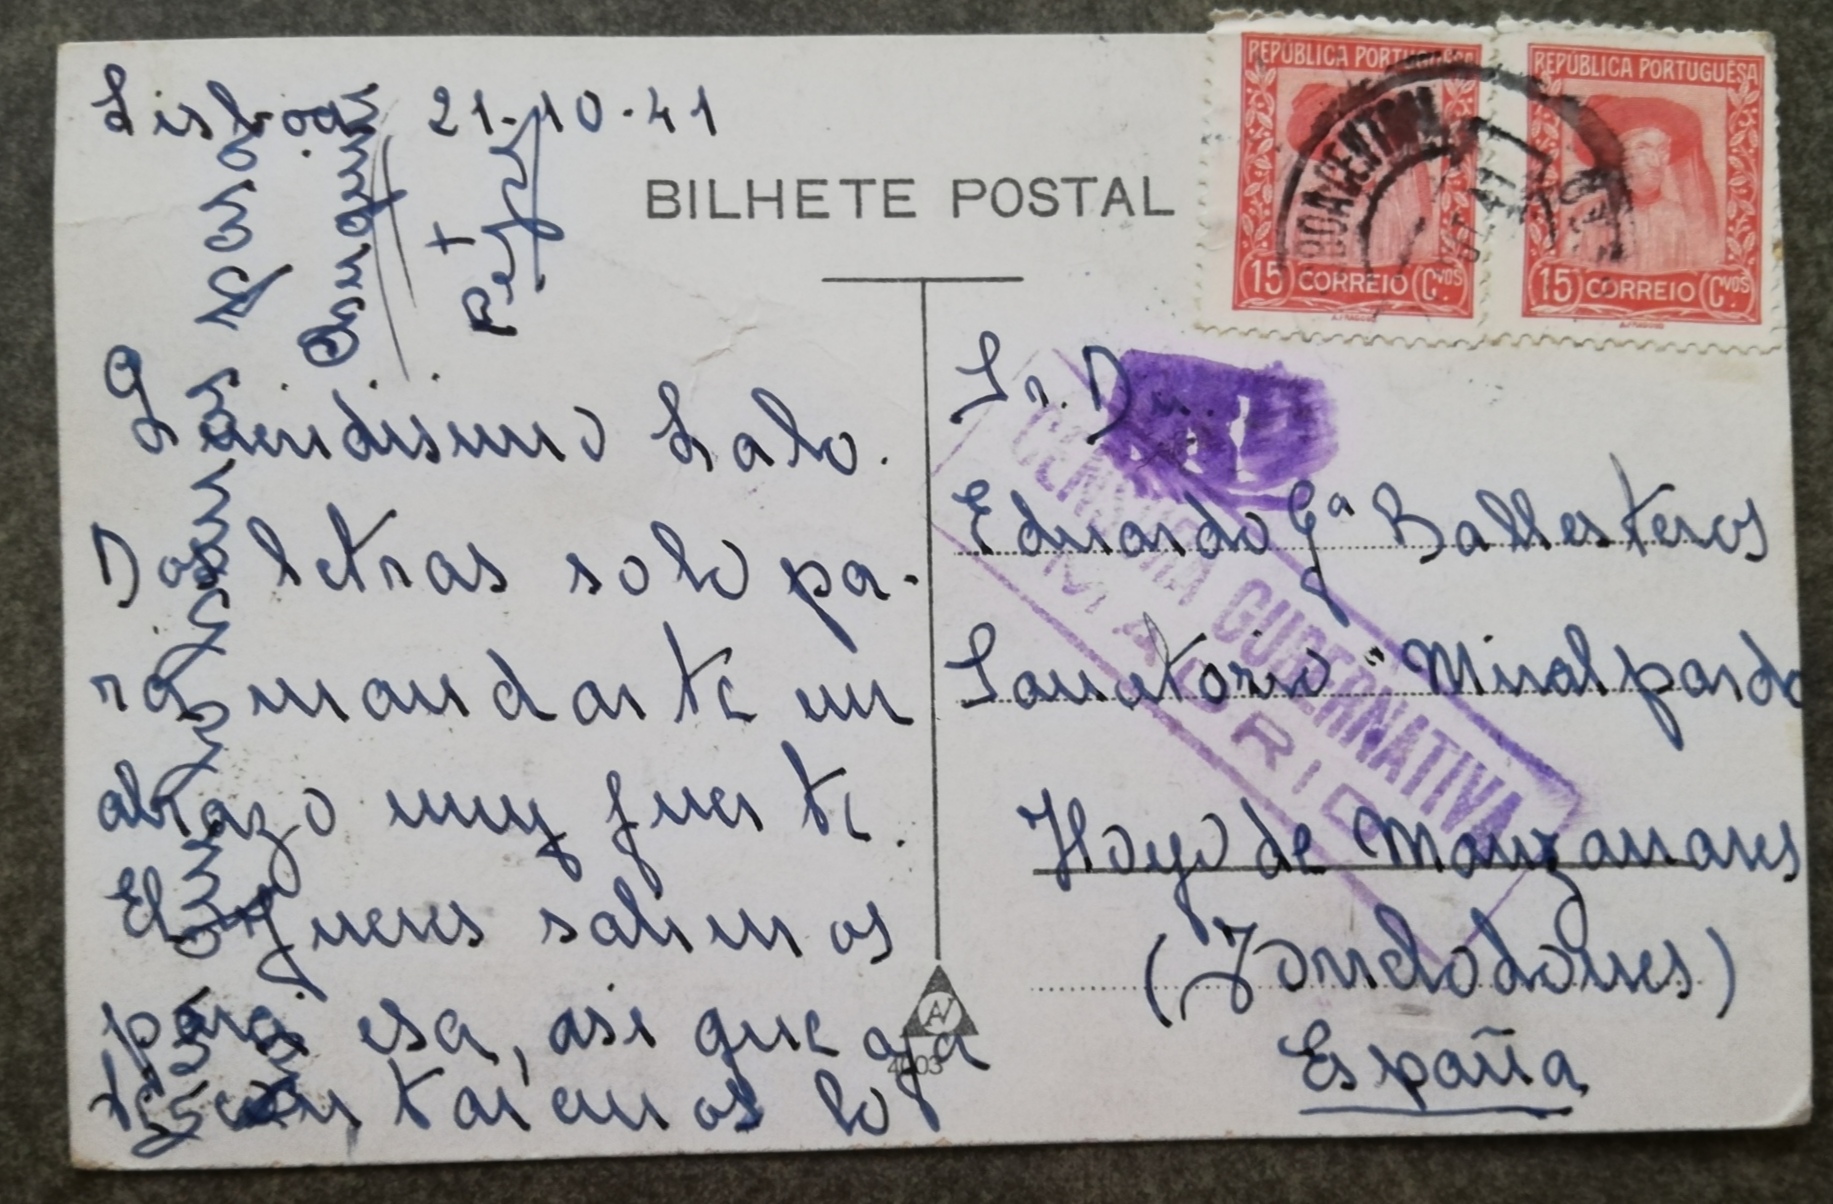 Lisboa 21-10-41
BILHETE POSTAL
REPÚBLICA PORTUGUESA
15 CORREIO Cvos
REPÚBLICA PORTUGUESA
15 CORREIO Cvos
Queridisimo Lalo.
Dos letras solo pa-
ra mandarte un
abrazo muy fuerte.
El jueves salimos
para esa, asi que aya
contaremos lo
pasa
Pepe
Sr. Dn.
Eduardo Gª Ballesteros
Sanatorio "Miralpardo
Hoyo de Manzanares
(Torrelodones)
España
CENSURA GUBERNATIVA
MADRID
AV
4003